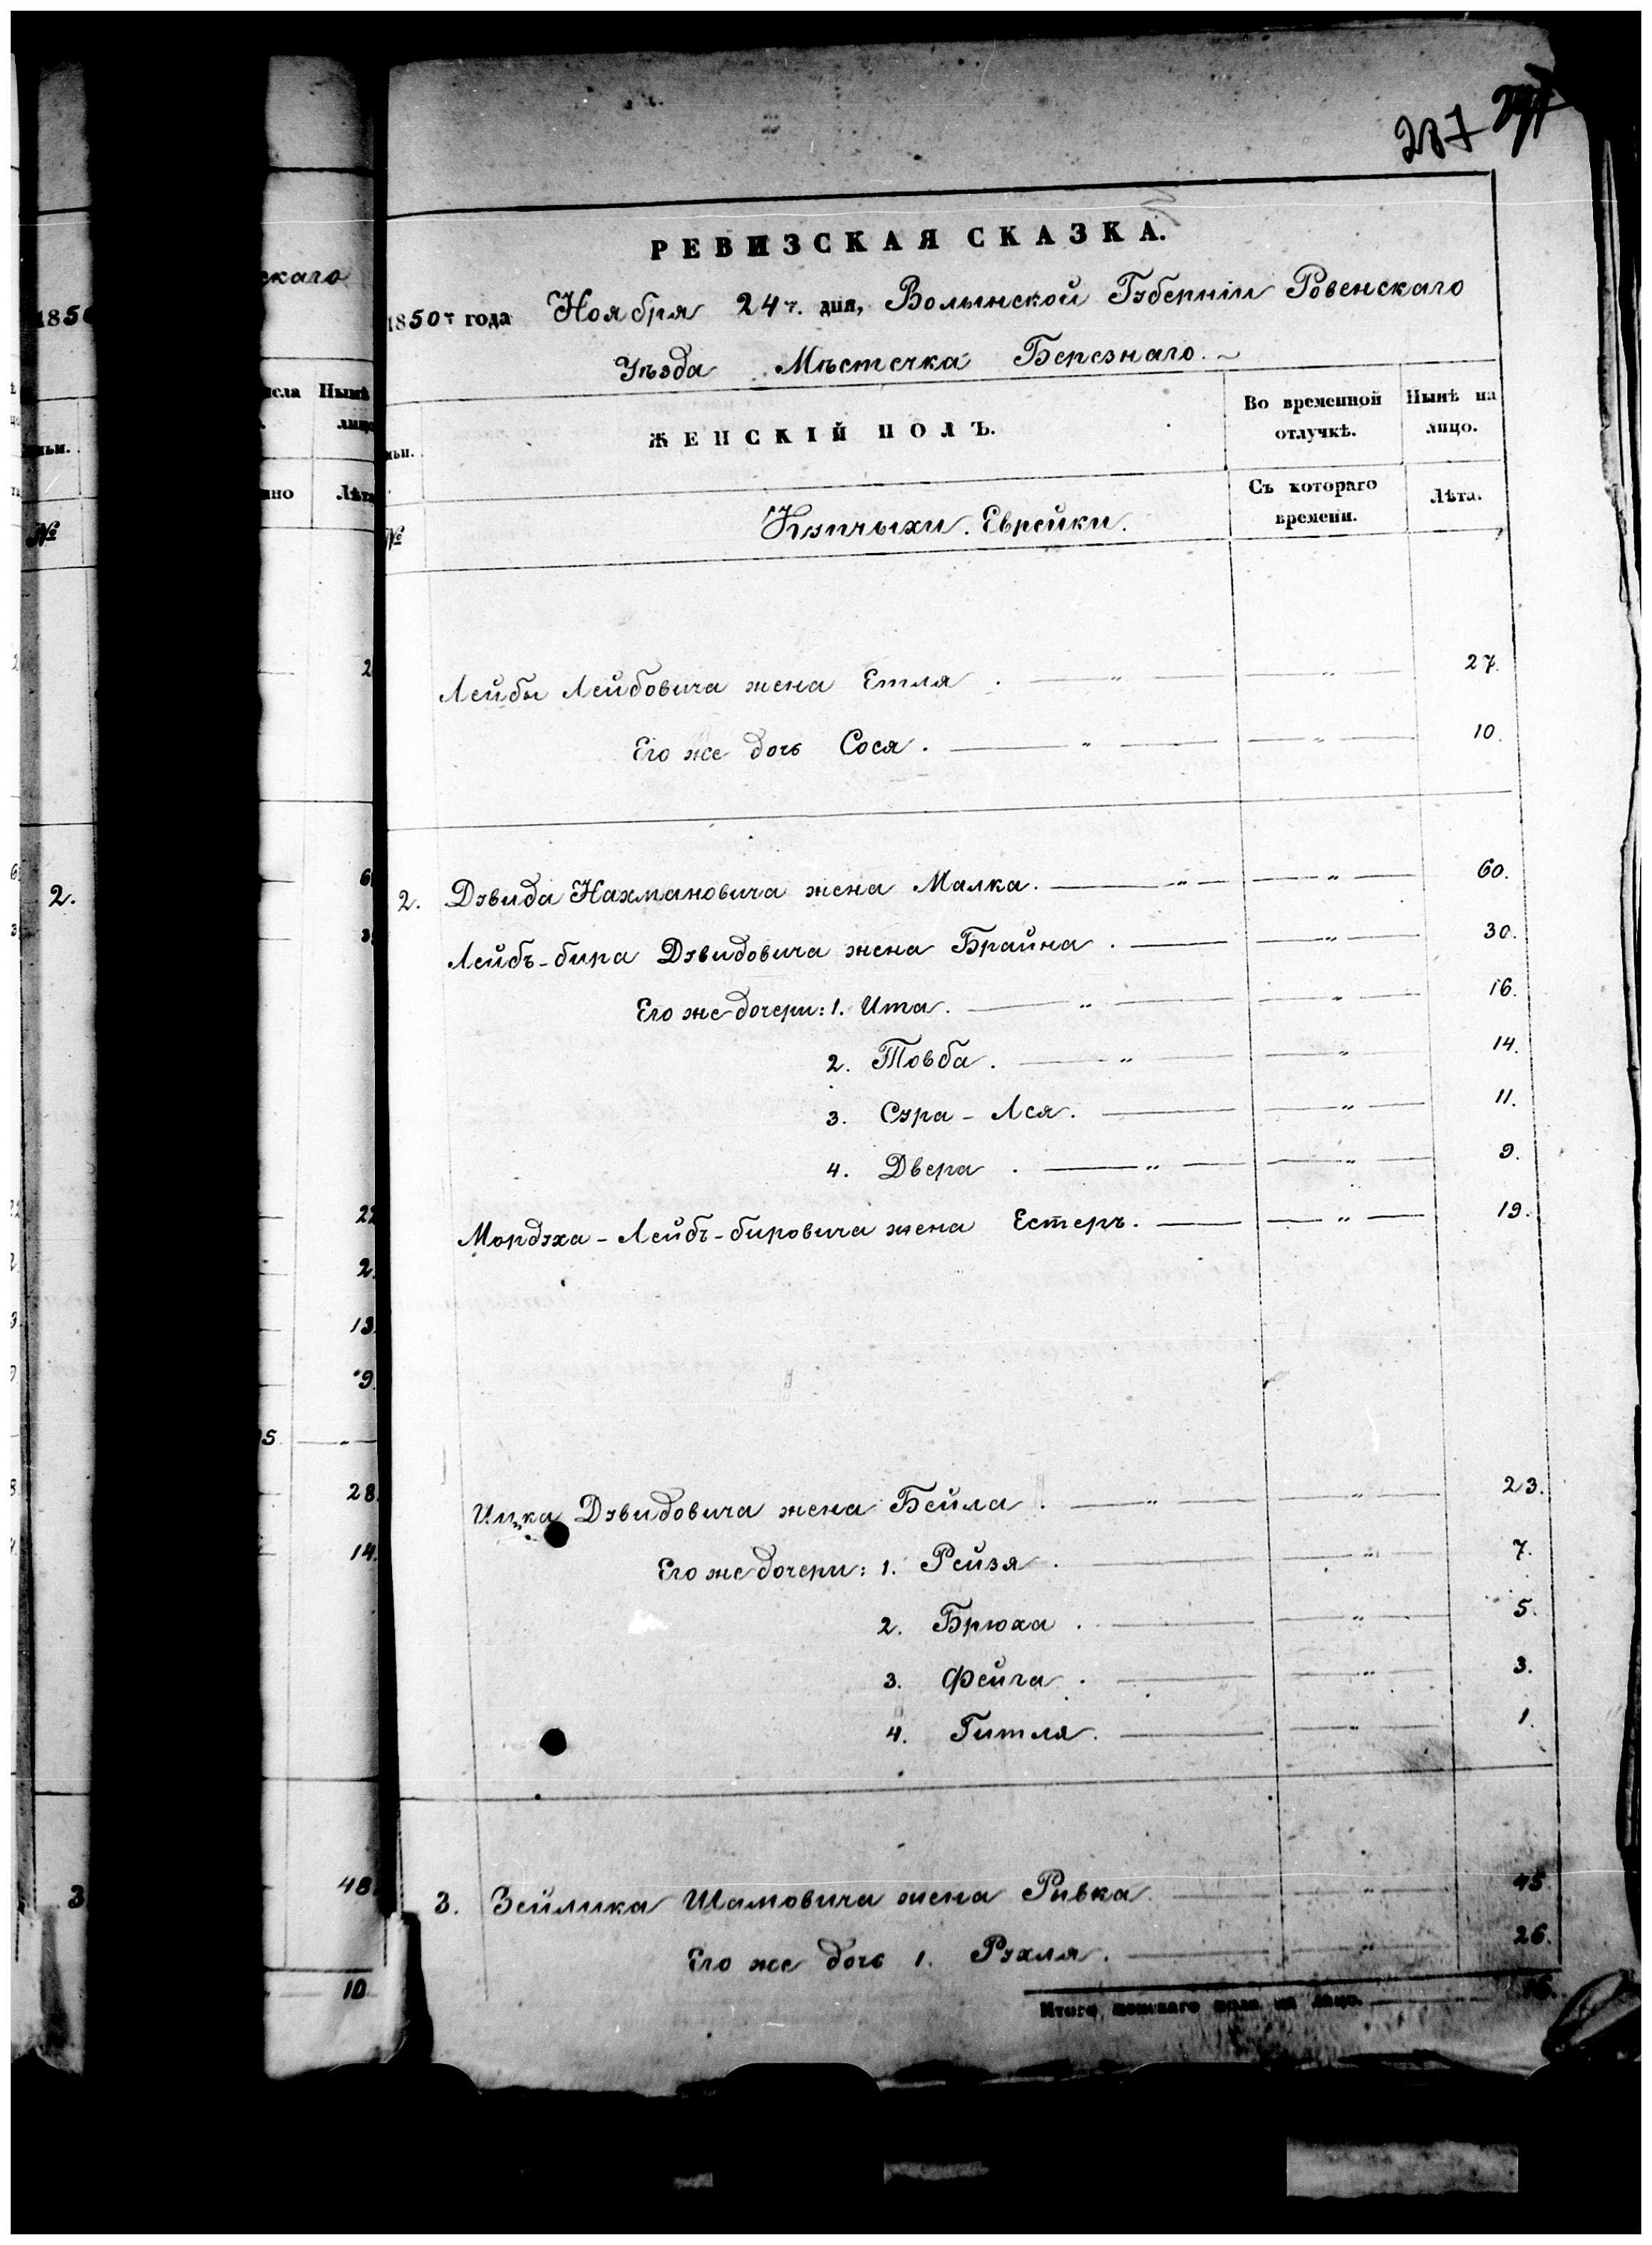 287
РЕВИЗСКАЯ СКАЗКА.
1850 г года Ноября 24 г. дня, Волынской Губерніи Ровенскаго
Уѣзда Мѣстечка Березнаго.
ЖЕНСКІЙ ПОЛЪ.
Во временной отлучкѣ.
Нынѣ на лицо.
№
Купчыхи. Еврейки.
Съ котораго времени.
Лѣта.
Лейбы Лейбовича жена Етля. — „ — „ — 27.
Его же дочь Сося. — „ — — „ — 10.
2. Дувида Нахмановича жена Малка. — „ — — „ — 60.
Лейбъ-бира Дувидовича жена Брайна. — — „ — 30.
Его же дочери: 1. Ита. — „ — — „ — 16.
2. Товба. — „ — — „ 14.
3. Сура-Лея. — — „ — 11.
4. Двера. — „ — — „ — 9.
Мордуха-Лейбъ-бировича жена Естеръ. — — „ — 19.
Ицка Дувидовича жена Бейла. — „ — — „ — 23.
Его же дочери: 1. Рейзя. — — „ — 7.
2. Брюха. — — „ — 5.
3. Фейга. — — „ — 3.
4. Гитля. — — „ — 1.
3. Зейлика Шамовича жена Ривка. — — „ — 45.
Его же дочь 1. Рухля. — — „ — 26.
Итого женскаго пола на лицо. — 16.
скаго
1850
Нынѣ
Лѣта
№
2.
3
2
6
3
22
2
13
9
5
28
14
48
10